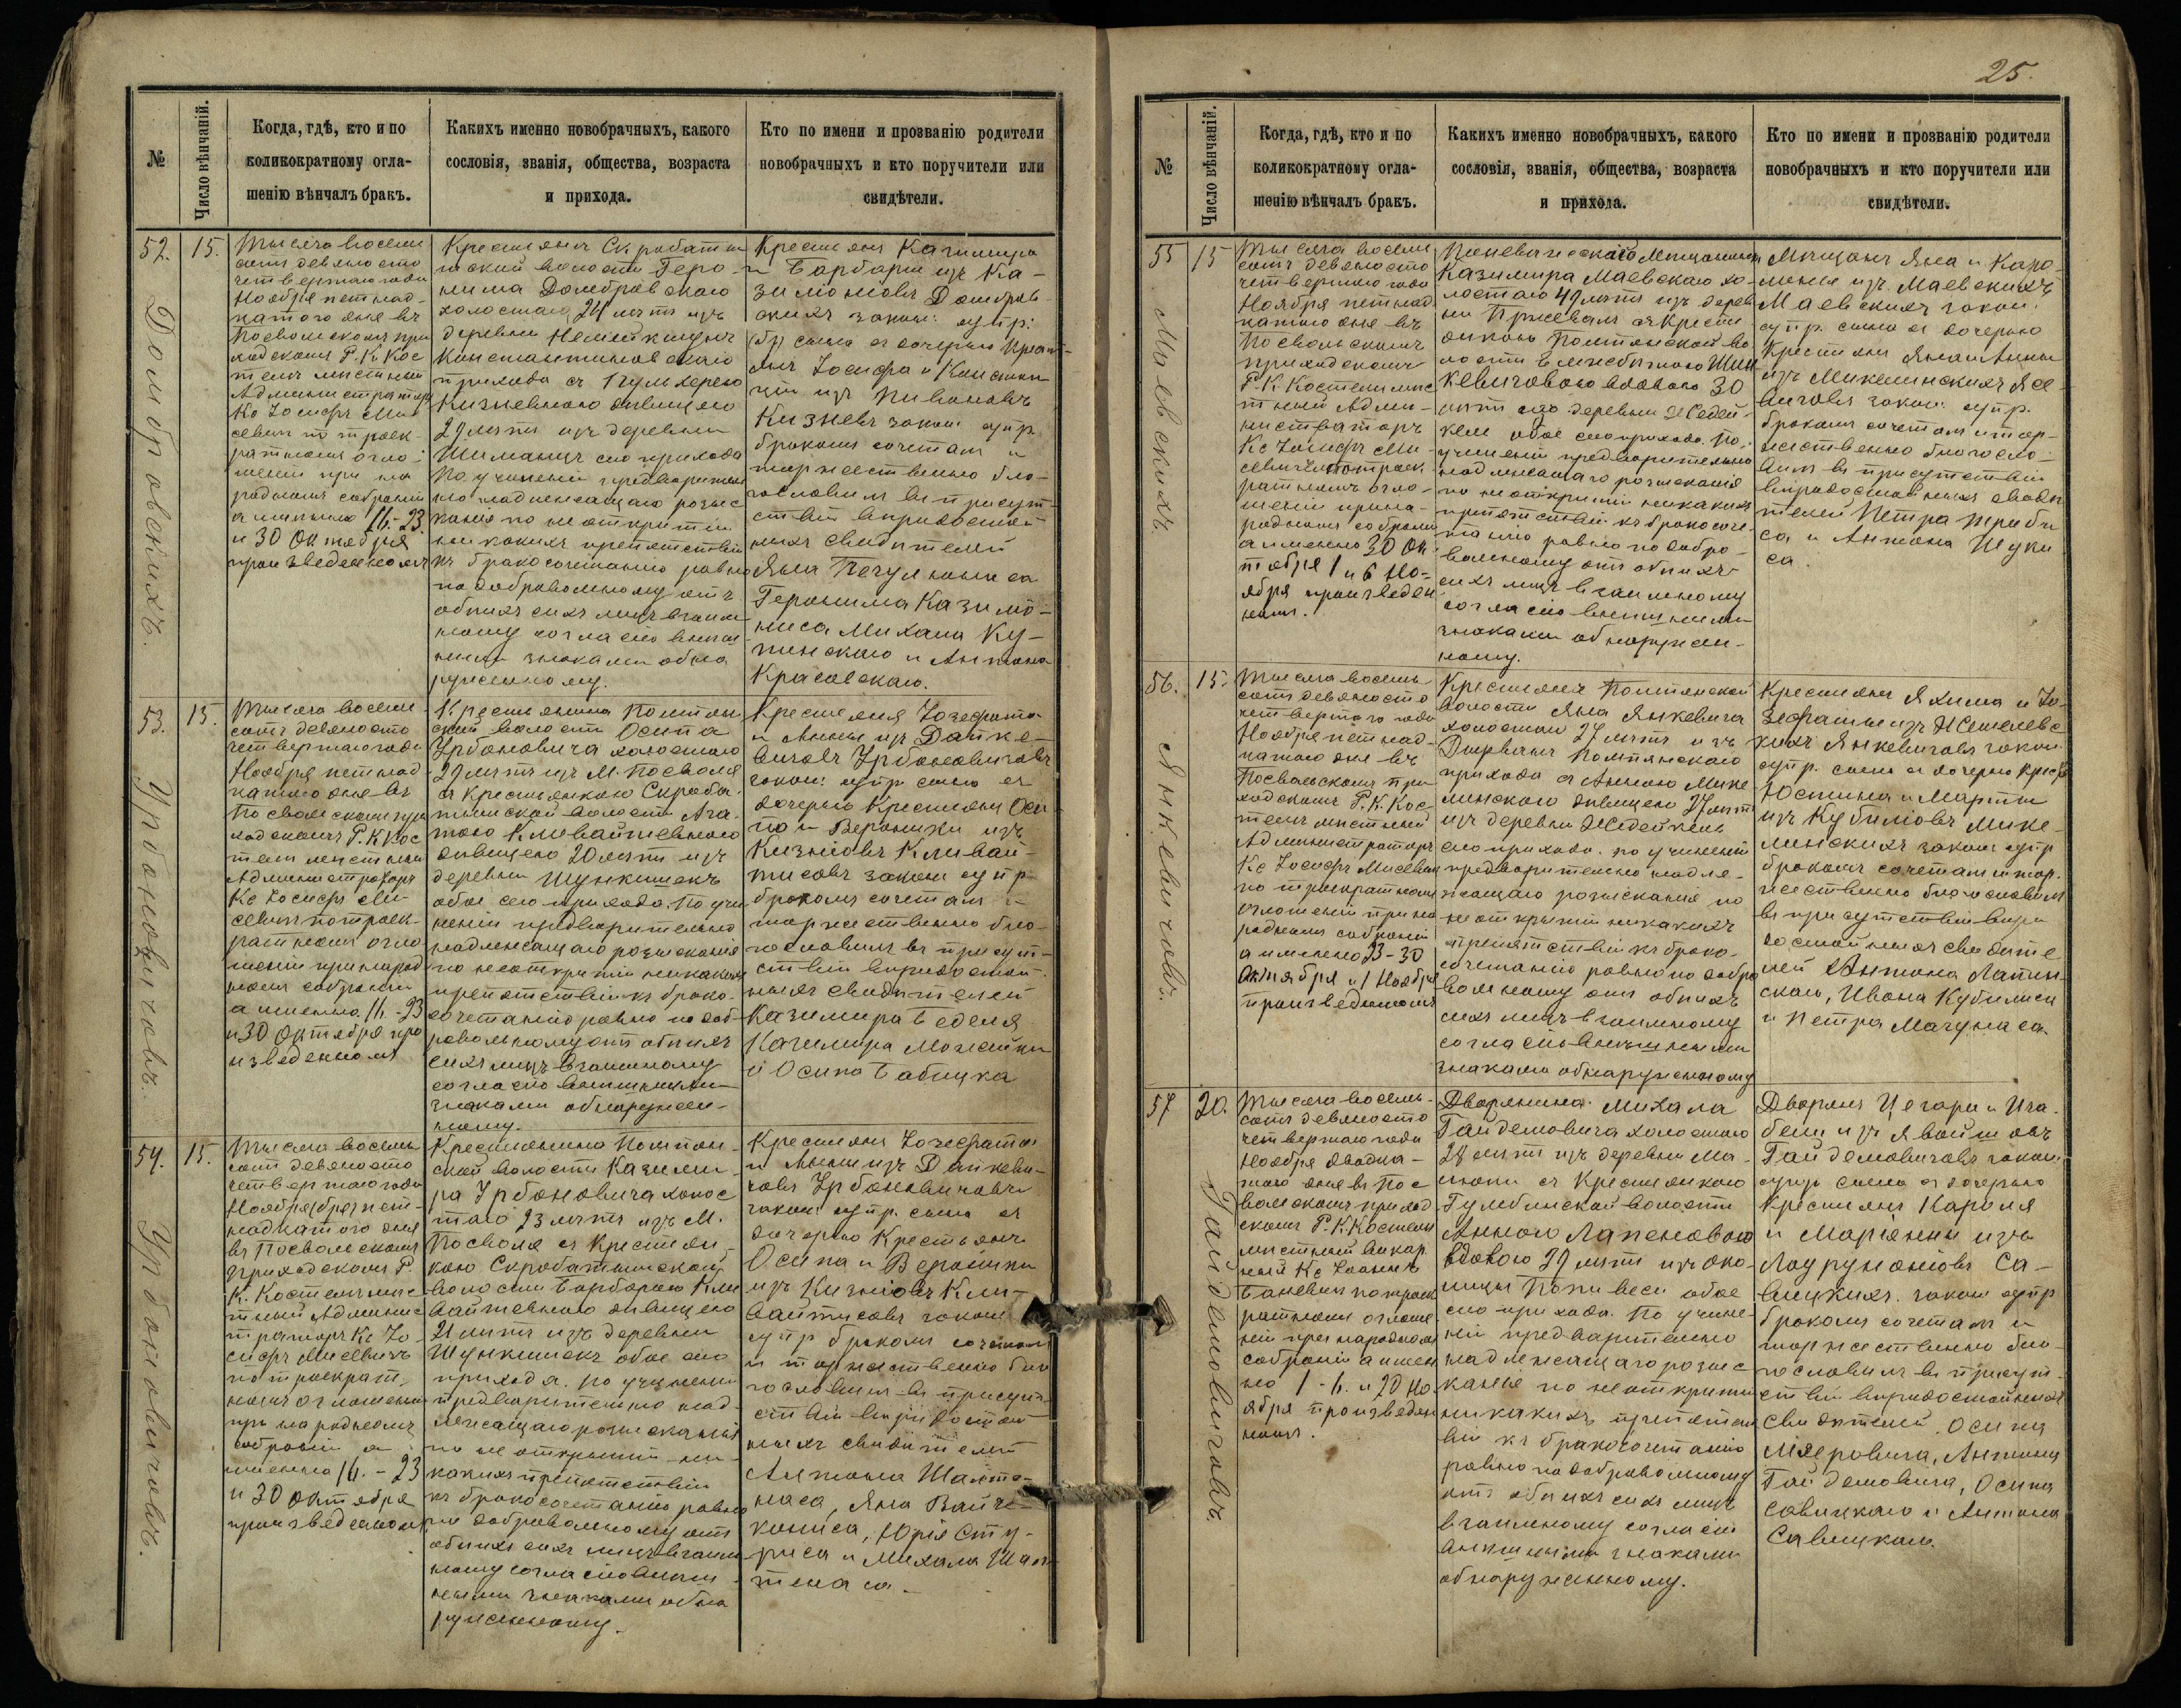 №
Число вѣнчаній.
Когда, гдѣ, кто и по
коликократному огла-
шенію вѣнчалъ бракъ.
Какихъ именно новобрачныхъ, какого
сословія, званія, общества, возраста
и прихода.
Кто по имени и прозванію родители
новобрачныхъ и кто поручители или
свидѣтели.
52.
15.
Домбровскихъ.
Тысяча восемь
сотъ девяносто
четвертаго года
Ноября пятнад-
цатого дня въ
Посвольскомъ при
ходскомъ Р. К. Кос
телѣ мѣстный
Администраторъ
Кс Іосифъ Ми
севичъ по троек-
ратномъ огла-
шеніи при на
родномъ собраніи
а именно 16.-23
и 30 Октября
произведенномъ
Крестьянина Скробатын
ской волости Геро
нима Домбровскаго
холостаго 24 лѣтъ изъ
деревни
Константиновскаго
прихода съ Пульхерею
Кизневною дѣвицею
29 лѣтъ изъ деревни
Шиманцъ сего прихода
По учиненіи предваритель
но надлежащаго розыс
канія по неоткрытіи
никакихъ препятствій
къ бракосочетанію равно
по добровольному отъ
обѣихъ сихъ лицъ взаим
ному согласію внѣш
ними знаками обна
руженному.
Крестьянъ Казимира
и Барбары изъ Ка-
зиліонісовъ Домбров
скихъ закон: супр:
(бр) сына съ дочерью Крест-
янъ Іосифа и Констан
ціи изъ Пивоновъ
Кизневъ закон супр.
бракомъ сочеталъ и
торжественно бла-
гословилъ въ присут-
ствіи вѣрадостой-
ныхъ свидѣтелей
Яна Печулениса
Геронима Казилю-
ниса Михала Ку-
пинскаго и Антона
Красовскаго.
53.
15.
Урбоновичовъ.
Тысяча восемь
сотъ девяносто
четвертаго года
Ноября пятнад
цатаго дня въ
Посвольскомъ при
ходскомъ Р. К Кос
телѣ мѣстный
Администраторъ
Кс Іосифъ Ми
севичъ по троек-
ратномъ огла
шеніи при народ
номъ собраніи
а именно 16.-23
и 30 Октября про
изведенномъ
Крестьянина Помпян
ской волости Осипа
Урбоновича холостаго
29 лѣтъ изъ М. Посволя
съ крестьянкою Скроба-
тынской волости Ага-
тою Кливайтевною
дѣвицею 20 лѣтъ изъ
деревни Шункишекъ
обое сего прихода. По учи
неніи предварительно
надлежащаго розысканія
по неоткрытіи никакихъ
препятствій къ брако-
сочетанію равно по доб-
ровольному отъ обѣихъ
сихъ лицъ взаимному
согласію внѣшними
знаками обнаружен-
ному.
Крестьянъ Іозефата
и Анны изъ Датке-
вичовъ Урбоновичовъ
закон: супр сына съ
дочерью Крестьянъ Оси
па и Вероники изъ
Кизнісовъ Кливай-
тисовъ закон супр
бракомъ сочеталъ и
торжественно бла-
гословилъ въ присут-
ствіи вѣрадостой-
ныхъ свидѣтелей
Казимира Беделя
Казимира Можейки
и Осипа Бабицка
54.
15.
Урбоновичовъ.
Тысяча восемь
сотъ девяносто
четвертаго года
Ноября (бря) пят-
надцатого дня
въ Посвольскомъ
приходскомъ Р.
К. Костелѣ мѣс
тный Админис
траторъ Кс Іо
сифъ Мисевичъ
по троекрат-
номъ оглашеніи
при народномъ
собраніи а
именно 16. - 23
и 30 Октября
произведенномъ
Крестьянина Помпян-
ской волости Казими-
ра Урбоновича холос
таго 23 лѣтъ изъ М.
Посволя съ Крестьян
кою Скробатынской
волости Барбарою Кли
вайтевною дѣвицею
21 лѣтъ изъ деревни
Шункишекъ обое сего
прихода. По учиненіи
предварительно над-
лежащаго розысканія
по неоткрытіи ни-
какихъ препятствій
къ бракосочетанію равно
по добровольному отъ
обѣихъ сихъ лицъ взаим
ному согласію внѣш-
ними знаками обна
руженному.
Крестьянъ Іозефата
и Анны изъ Даткеви-
човъ Урбоновичовъ
закон: супр. сына съ
дочерью Крестьянъ
Осипа и Вероники
изъ Кизнісовъ Кли-
вайтисовъ закон
супр бракомъ сочеталъ
и торжественно бла
гословилъ въ присут-
ствіи вѣрадостой
ныхъ свидѣтелей
Антона Шалте-
наса, Яна Вайче-
кониса, Юрія Сту-
риса и Михала Шал-
тенаса.
25.
№
Число вѣнчаній.
Когда, гдѣ, кто и по
коликократному огла-
шенію вѣнчалъ бракъ.
Какихъ именно новобрачныхъ, какого
сословія, званія, общества, возраста
и прихода.
Кто по имени и прозванію родители
новобрачныхъ и кто поручители или
свидѣтели.
55
15
Маевскихъ.
Тысяча восемь
сотъ девяносто
четвертаго года
Ноября пятнад
цатаго дня въ
Посвольскомъ
приходскомъ
Р. К. Костелѣ мѣс
тный Адми-
нистраторъ
Кс Іосифъ Ми-
севичъ по троек-
ратномъ огла-
шеніи при на-
родномъ собраніи
а именно 30 Ок-
тября 1 и 6 Но-
ября произведен
номъ.
Поневѣжскаго Мѣщанина
Казимира Маевскаго хо-
лостаго 47 лѣтъ изъ дерев
ни съ Крестьян
скою Помпянской во
лости
вдовою 30
лѣтъ изъ деревни Жедей-
кем обое сего прихода. По
учиненіи предварительно
надлежащаго розысканія
по неоткрытіи никакихъ
препятствій къ бракосоче-
танію равно по добро-
вольному отъ обѣихъ
сихъ лицъ взаимному
согласію внѣшними
знаками обнаружен-
ному.
Мѣщанъ Яна и Каро-
лины изъ Маевскихъ
Маевскихъ закон.
супр. сына съ дочерью
Крестьянъ Яна и Анны
изъ Микелинскихъ Ясе-
вичовъ закон супр.
бракомъ сочеталъ и тор-
жественно благосло-
вилъ въ присутствіи
вѣрадостойныхъ свидѣ
телей Петра Триби
са и Антона Шуки
са.
56.
15.
Янкевичовъ.
Тысяча восемь
сотъ девяносто
четвертаго года
Ноября пятнад-
цатаго дня въ
Посвольскомъ при
ходскомъ Р. К. Кос-
телѣ мѣстный
Администраторъ
Кс Іосифъ Мисевичъ
по троекратномъ
оглашеніи при на
родномъ собраніи
а именно 23-30
Октября и 1 Ноября
произведенномъ
Крестьянина Помпянской
волости Яна Янкевича
холостаго 27 лѣтъ изъ
Помпянскаго
прихода съ Анною Мике
линскою дѣвицею 27 лѣтъ
изъ деревни Жедейкемъ
сего прихода. По учиненіи
предварительно надле-
жащаго розысканія по
неоткрытіи никакихъ
препятствій къ брако-
сочетанію равно по добро
вольному отъ обѣихъ
сихъ лицъ взаимному
согласію внѣшними
знаками обнаруженному
Крестьянъ Якима и Іо-
зефаты изъ Жемелевс
кихъ Янкевичовъ закон
супр. сына съ дочерью Крест
Юстина и Марты
изъ Кубиліовъ Мике-
линскихъ закон супр
бракомъ сочеталъ и тор-
жественно благословилъ
въ присутствіи вѣра
достойныхъ свидѣте
лей Антона Лапин-
скаго, Ивана Кубилиса
и Петра Мачунаса.
57
20.
Гайдемовичовъ.
Тысяча восемь-
сотъ девяносто
четвертаго года
Ноября двадца-
таго дня въ Пос
вольскомъ приход
скомъ Р. К. Костелѣ
мѣстный викар
ный Кс Іоаннъ
Баневичъ по троек
ратномъ оглаше
ніи при народномъ
собраніи а имен
но 1 - 6. и 20 Но
ября произведен
номъ.
Дворянина Михала
Гайдемовича холостаго
28 лѣтъ изъ деревни Ма-
съ Крестьянкою
Гумбинской волости
Анною Лапеновою
вдовою 29 лѣтъ изъ око-
лицы обое
сего прихода. По учине-
ніи предварительно
надлежащаго розыс
канія по неоткрытіи
никакихъ препятст
вій къ бракосочетанію
равно по добровольному
отъ обѣихъ сихъ лицъ
взаимному согласію
внѣшними знаками
обнаруженному.
Дворянъ Цезара и Иза-
бели изъ Явойшовъ
Гайдемовичовъ закон
супр сына съ дочерью
Крестьянъ Кароля
и Маріянны изъ
Са-
вицкихъ. закон супр
бракомъ сочеталъ и
торжественно бла-
гословилъ въ присут-
ствіи вѣрадостойныхъ
свидѣтелей Осипа
Антона
Гайдемовича, Осипа
Савицкаго и Антона
Савицкаго.